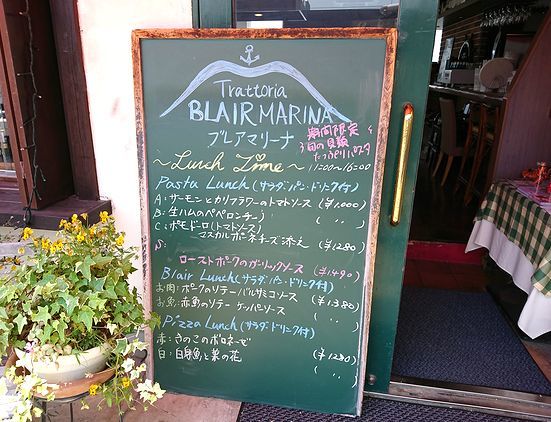 Trattoria
BLAIR MARINA
ブレアマリーナ
期間限定
旬の貝類
たっぷりパスタ
~Lunch Time~ 11:00~16:00
Pasta Lunch (サラダ・パン・ドリンク付)
A:サーモンとカリフラワーのトマトソース (¥1,000)
B:生ハムのペペロンチーノ ( 〃 )
C:ポモドーロ(トマトソース)
マスカルポーネチーズ添え (¥1280)
S:
ローストポークのガーリックソース (¥1490)
Blair Lunch (サラダ・パン・ドリンク付)
お肉:ポークのソテーバルサミコソース (¥1,380)
お魚:赤魚のソテーケッパーソース ( 〃 )
Pizza Lunch (サラダ・ドリンク付)
赤:きのこのボロネーゼ (¥1280)
白:白身魚と菜の花 ( 〃 )